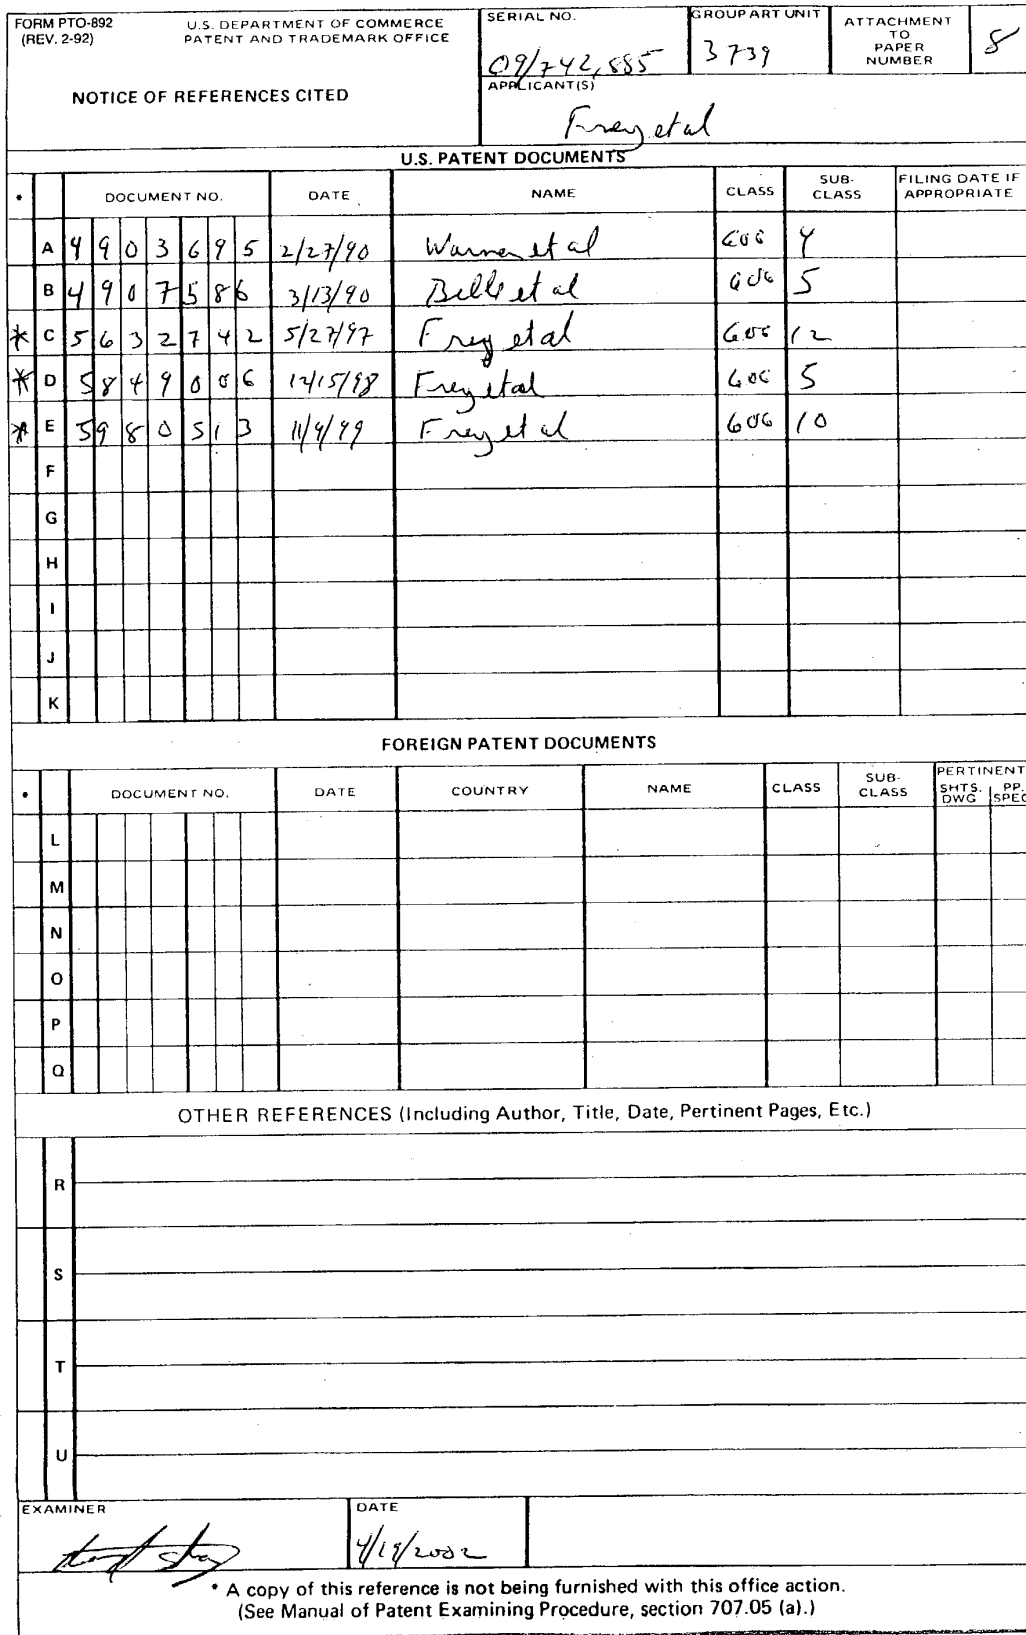 FORM PTO-892
(REV. 2-92)
U.S. DEPARTMENT OF COMMERCE
PATENT AND TRADEMARK OFFICE
NOTICE OF REFERENCES CITED
SERIAL NO.
09/742,885
GROUP ART UNIT
3739
ATTACHMENT
TO
PAPER
NUMBER
8
APPLICANT(S)
Frey et al
U.S. PATENT DOCUMENTS
* DOCUMENT NO. DATE NAME CLASS SUB-CLASS FILING DATE IF APPROPRIATE
A 4903695 2/27/90 Warner et al 606 4
B 4907586 3/13/90 Bille et al 606 5
* C 5632742 5/27/97 Frey et al 606 12
* D 5849006 12/15/98 Frey et al 606 5
* E 5980513 11/9/99 Frey et al 606 10
F
G
H
I
J
K
FOREIGN PATENT DOCUMENTS
* DOCUMENT NO. DATE COUNTRY NAME CLASS SUB-CLASS PERTINENT SHTS. DWG PP. SPEC
L
M
N
O
P
Q
OTHER REFERENCES (Including Author, Title, Date, Pertinent Pages, Etc.)
R
S
T
U
EXAMINER
DATE
4/19/2002
* A copy of this reference is not being furnished with this office action.
(See Manual of Patent Examining Procedure, section 707.05 (a).)